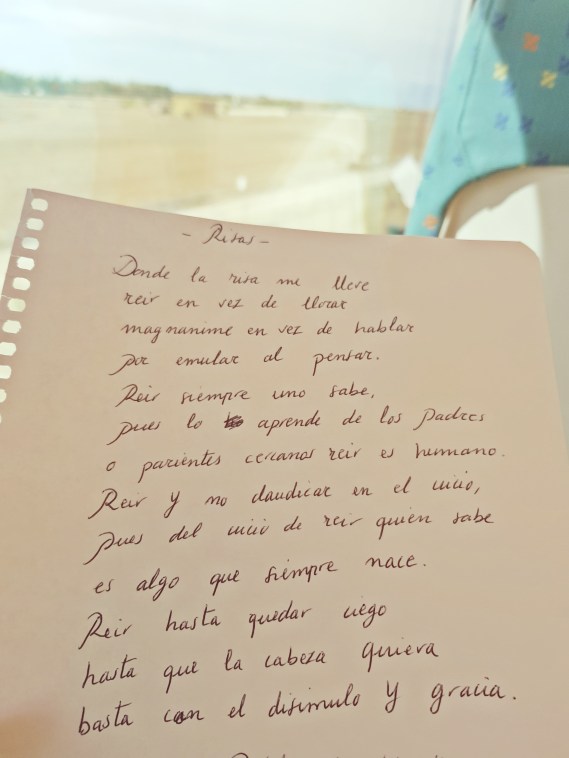 - Risas -
Donde la risa me lleve
reir en vez de llorar
magnanime en vez de hablar
por emular al pensar.
Reir siempre uno sabe,
pues lo aprende de los padres
o parientes cercanos reir es humano.
Reir y no claudicar en el inicio,
pues del inicio de reir quien sabe
es algo que siempre nace.
Reir hasta quedar ciego
hasta que la cabeza quiera
basta con el disimulo y gracia.